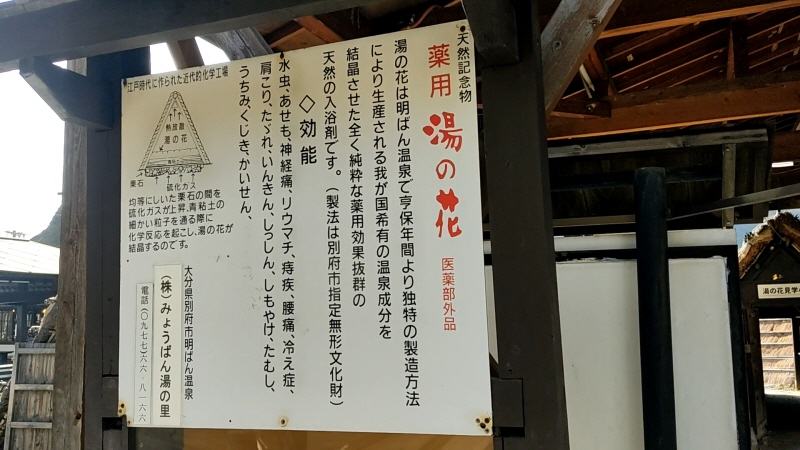 天然記念物
薬用 湯の花 医薬部外品
湯の花は明ばん温泉で亨保年間より独特の製造方法
により生産される我が国希有の温泉成分を
結晶させた全く純粋な薬用効果抜群の
天然の入浴剤です。(製法は別府市指定無形文化財)
◇効能
水虫、あせも、神経痛、リウマチ、痔疾、腰痛、冷え症、
肩こり、たゞれ、いんきん、しっしん、しもやけ、たむし、
うちみ、くじき、かいせん、
江戸時代に作られた近代的化学工場
熱放散
湯の花
青粘土
栗石
硫化ガス
均等にしいた栗石の間を
硫化ガスが上昇、青粘土の
細かい粒子を通る際に
化学反応を起こし、湯の花が
結晶するのです。
大分県別府市明ばん温泉
(株)みょうばん湯の里
電話(〇九七七)六六‐八一六六
湯の花見学